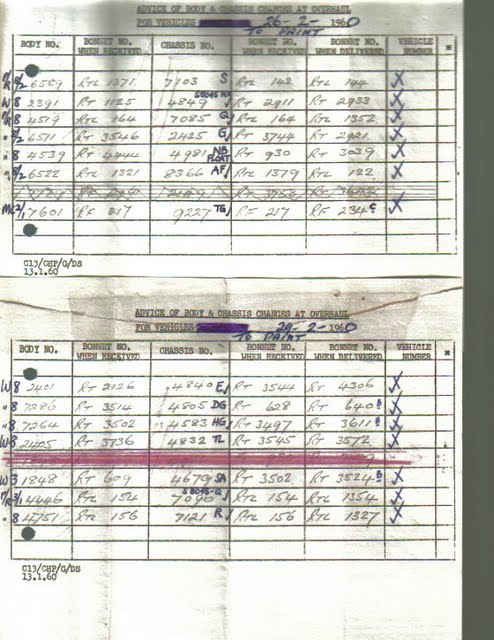 ADVICE OF BODY & CHASSIS CHANGES AT OVERHAUL
FOR VEHICLES 26-2-1960
TO PAINT
BODY NO. BONNET NO. WHEN RECEIVED CHASSIS NO. BONNET NO. WHEN RECEIVED BONNET NO. WHEN DELIVERED VEHICLE NUMBER
8/2 6589 RTL 1371 7103 S RTL 142 RTL 144 X
W 8 2391 RT 1125 4849 RT 2911 RT 2933 X
8 4519 RTL 164 7085 Q RTL 164 RTL 1352 X
" 8/2 6571 RT 3546 2425 G RT 3744 RT 2421 X
" 8 4539 RT 4444 4981 NB FLOAT RT 930 RT 3039 X
" 8/2 6522 RTL 1321 8366 AF RTL 1379 RTL 122 X
MC 2/1 7601 RF 217 9227 TG RF 217 RF 234 C X
C13/CHP/G/DS
13.1.60
ADVICE OF BODY & CHASSIS CHANGES AT OVERHAUL
FOR VEHICLES 29-2-1960
TO PAINT
BODY NO. BONNET NO. WHEN RECEIVED CHASSIS NO. BONNET NO. WHEN RECEIVED BONNET NO. WHEN DELIVERED VEHICLE NUMBER
W 8 2401 RT 2126 4840 E RT 3544 RT 4306 X
" 8 7286 RT 3514 4805 DG RT 628 RT 640 B X
" 8 7264 RT 3502 4583 HG RT 3497 RT 3611 B X
W 8 2405 RT 3736 4832 TL RT 3545 RT 3572 X
W 3 1848 RT 609 4679 SA RT 3502 RT 3524 B X
3/1 4446 RTL 154 7096 RTL 154 RTL 1354 X
" 8 4751 RTL 156 7121 R RTL 156 RTL 1327 X
C13/CHP/G/DS
13.1.60